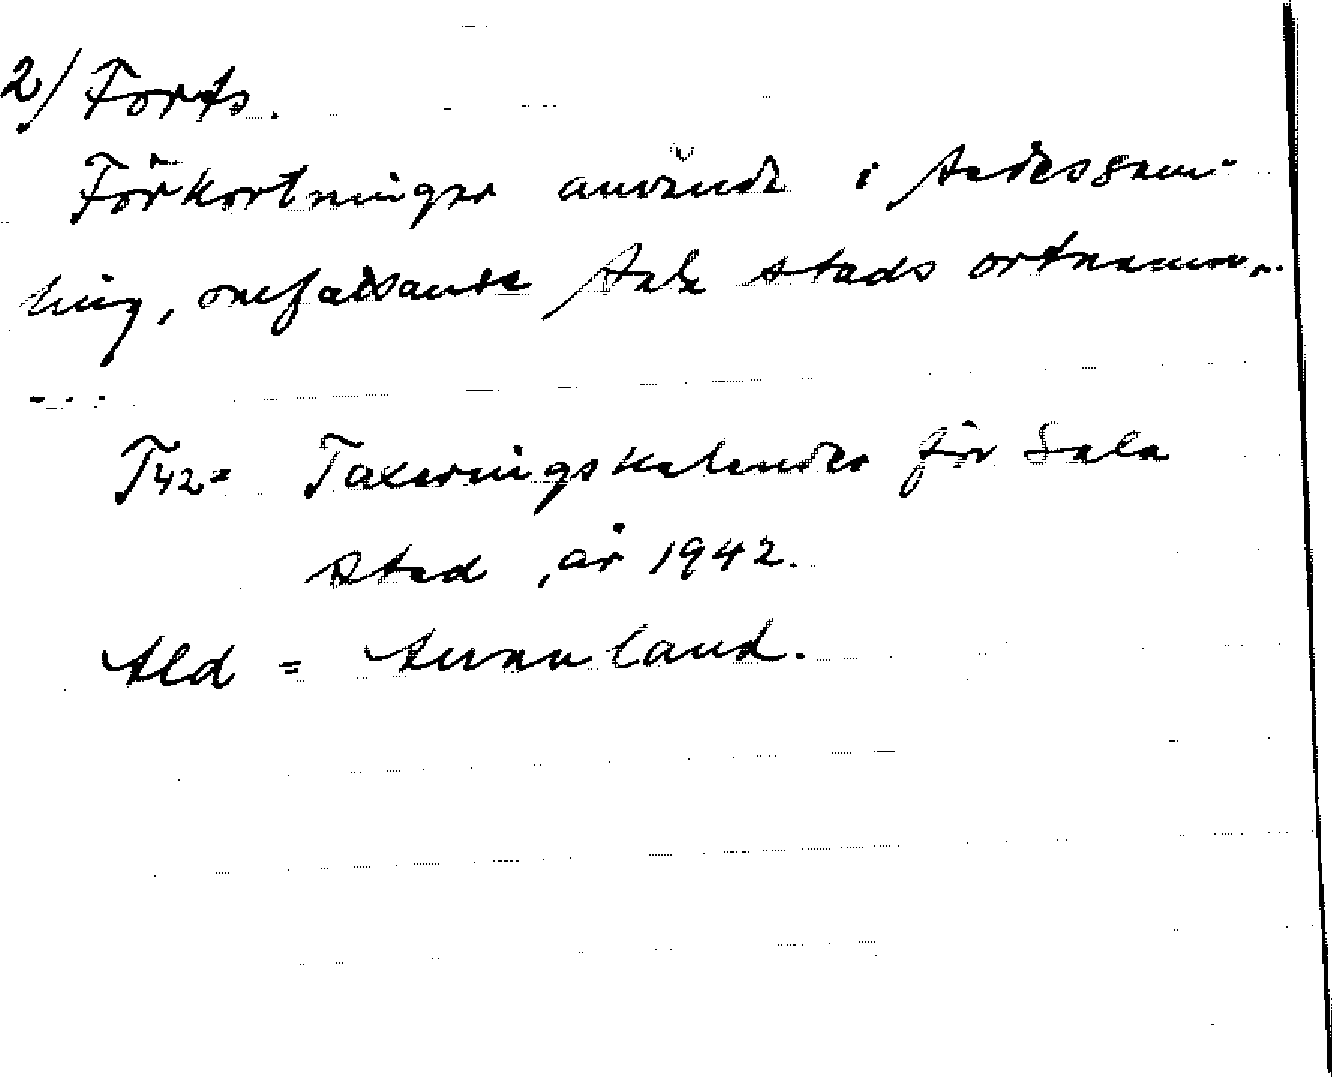 2/ Forts.
Förkortningar använda i
ling, omfattande Sala stads ortnamn.
T42= Taxeringskalender för Sala
stad, år 1942.
= land.